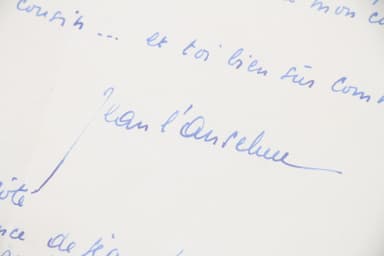 mon
cousin ... et toi bien sûr com
Jean l'anselme
ôté
nce de